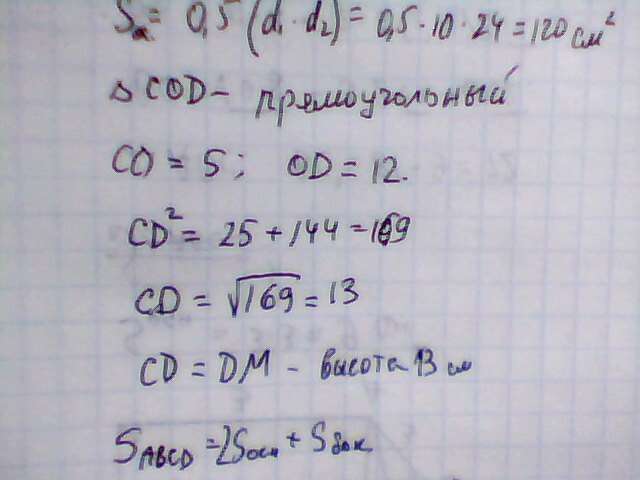 S = 0,5 (d₁ · d₂) = 0,5 · 10 · 24 = 120 см²
△ COD - прямоугольный
CO = 5; OD = 12.
CD² = 25 + 144 = 169
CD = √169 = 13
CD = DM - высота 13 см
S ABCD = 2Sосн + Sбок